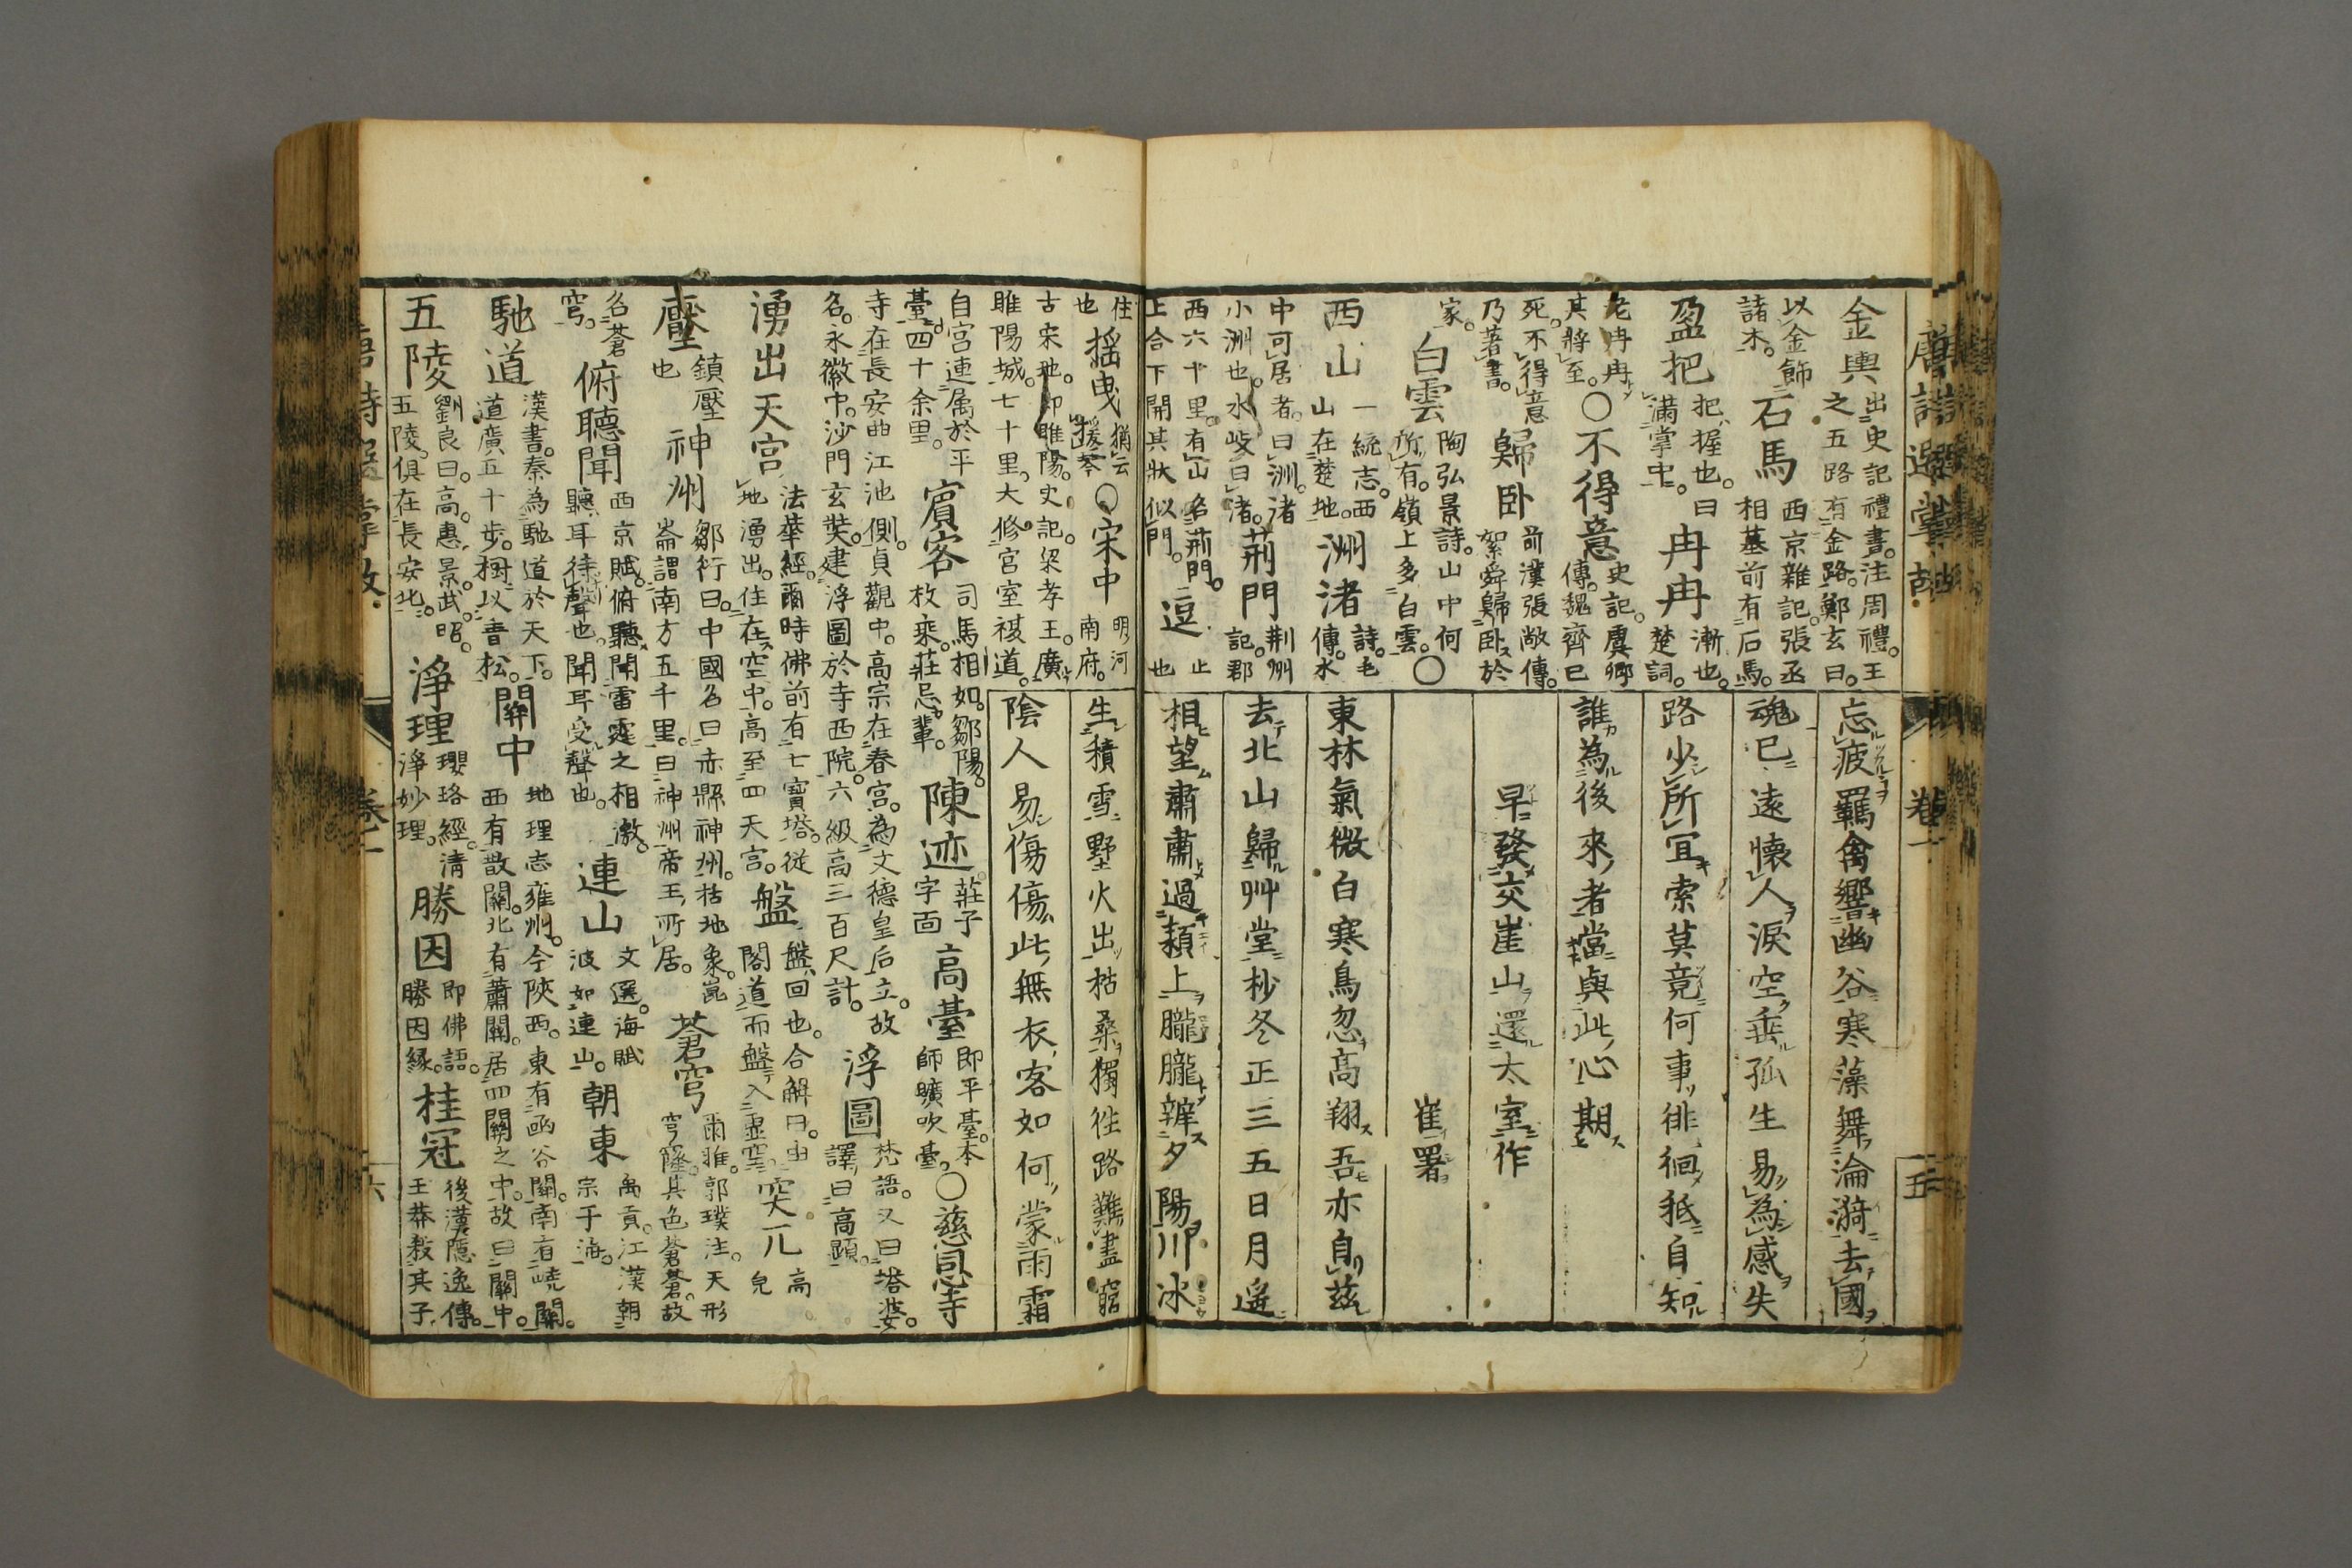 唐詩選掌故
卷一
五
金輿
出史記禮書。注周禮。王
之五路有金路。鄭玄曰。
以金飾
諸末。
石馬
西京雜記。張丞
相墓前有石馬。
盈把
把、握也。曰
滿掌中。
冉冉
漸也。
楚詞。
老冉冉
其將至。
○不得意
史記。虞卿傳。
傳。魏齊已
死。不得意
乃著書。
歸卧
前漢張敞傳。
絮舜歸卧於
家。
白雲
陶弘景詩。山中何
所有。嶺上多白雲。○
西山
一統志。西
山在楚地。
洲渚
詩。毛
傳。水
中可居者。曰洲。渚
小洲也。水岐曰渚。
荊門
荊州
記。郡
西六十里。有山名荊門。
上合下開其狀似門。
逗
止
也
忘疲羈禽響幽谷寒藻舞淪漪去國
魂已遠懷人淚空垂孤生易為感失
路少所宜索莫竟何事徘徊秖自知
誰為後來者當與此心期
早發交崖山還太室作
崔署
東林氣微白寒鳥忽高翔吾亦自茲
去北山歸艸堂杪冬正三五日月遥
相望肅肅過潁上朧朧辧夕陽川冰
住
也
揺曳
猶云
援牽
○宋中
明河
南府。
古宋地。即睢陽。史記。梁孝王。廣
睢陽城。七十里。大修宮室複道。
自宮連属於平
臺。四十余里。
賓客
司馬相如。鄒陽。
枚乘。莊忌輩。
陳迹
莊子
字面
高臺
即平臺。本
師曠吹臺。
○慈恩寺
寺在長安曲江池側。貞觀中。高宗在春宮。為文德皇后立。故
名。永徽中。沙門玄奘。建浮圖於寺西院。六級高三百尺計。
浮圖
梵語。又曰塔婆。
譯曰高顕。
湧出天宮
法華經。爾時佛前有七寶塔。従
地湧出。住在空中。高至四天宮。
盤
盤、回也。合解曰。由
閣道而盤入虚空。
突兀
高
皃
壓
鎮壓
也
神州
鄒衍曰。中國名曰赤縣神州。括地象。崑
崙謂南方五千里。曰神州帝王所居。
蒼穹
爾雅。郭璞注。天形
穹隆。其色蒼蒼。故
名蒼
穹。
俯聴聞
西京賦。俯聴聞雷霆之相激。
聴耳待聲也。聞耳受聲也。
連山
文選。海賦
波如連山。
朝東
禹貢。江漢朝
宗于海。
馳道
漢書。秦為馳道於天下。
道廣五十步。樹以青松。
關中
地理志雍州。今陝西。東有函谷關。南有嶢關。
西有散關。北有蕭關。居四關之中。故曰關中。
五陵
劉良曰。高。惠。景。武。昭。
五陵。俱在長安北。
淨理
瓔珞經。清
淨妙理。
勝因
即佛語。
勝因縁。
桂冠
後漢隱逸傳。
王莽殺其子
生積雪野火出枯桑獨徃路難盡窮
陰人易傷傷此無衣客如何蒙雨霜